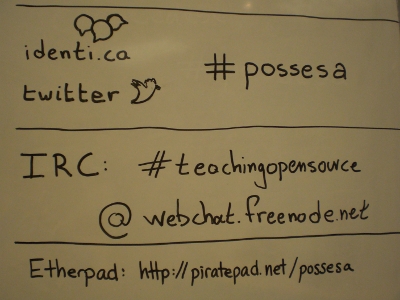 identi.ca
twitter
#possesa
IRC: #teachingopensource
@ webchat.freenode.net
Etherpad: http://piratepad.net/possesa